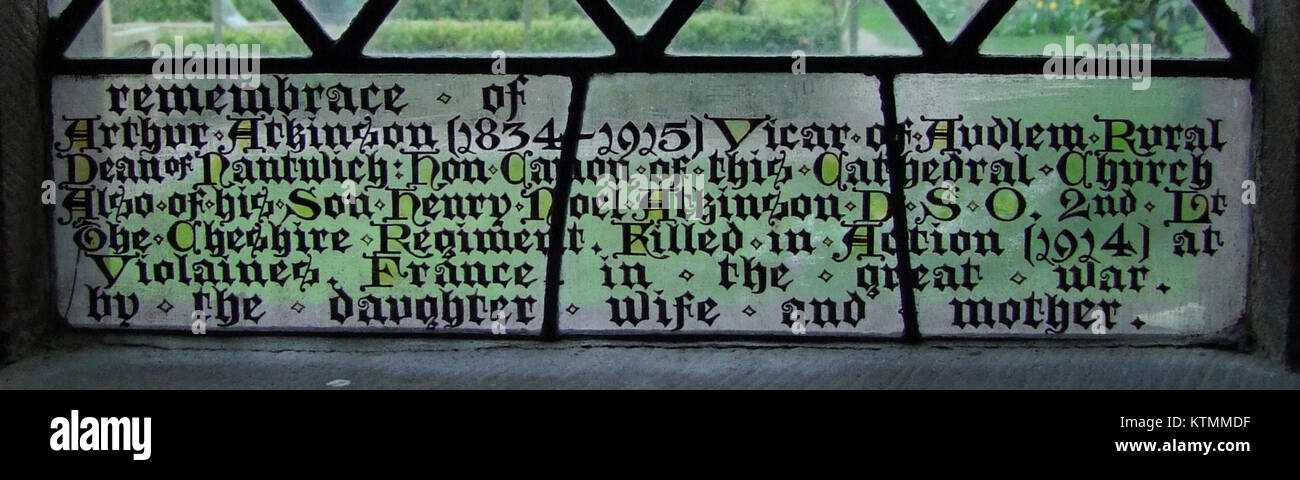 remembrace · of
Arthur · Atkinson (1834–1915) Vicar · of · Audlem · Rural
Dean of Nantwich : Hon · Canon · of · this · Cathedral · Church
Also · of · his · Son · Henry · Noel · Atkinson · D · S · O. 2nd · Lt
The · Cheshire · Regiment. Killed · in · Action (1914) at
Violaines. France. in · the · great · war.
by · the · daughter · wife · and · mother.
alamy stock photo
KTMMDF
www.alamy.com